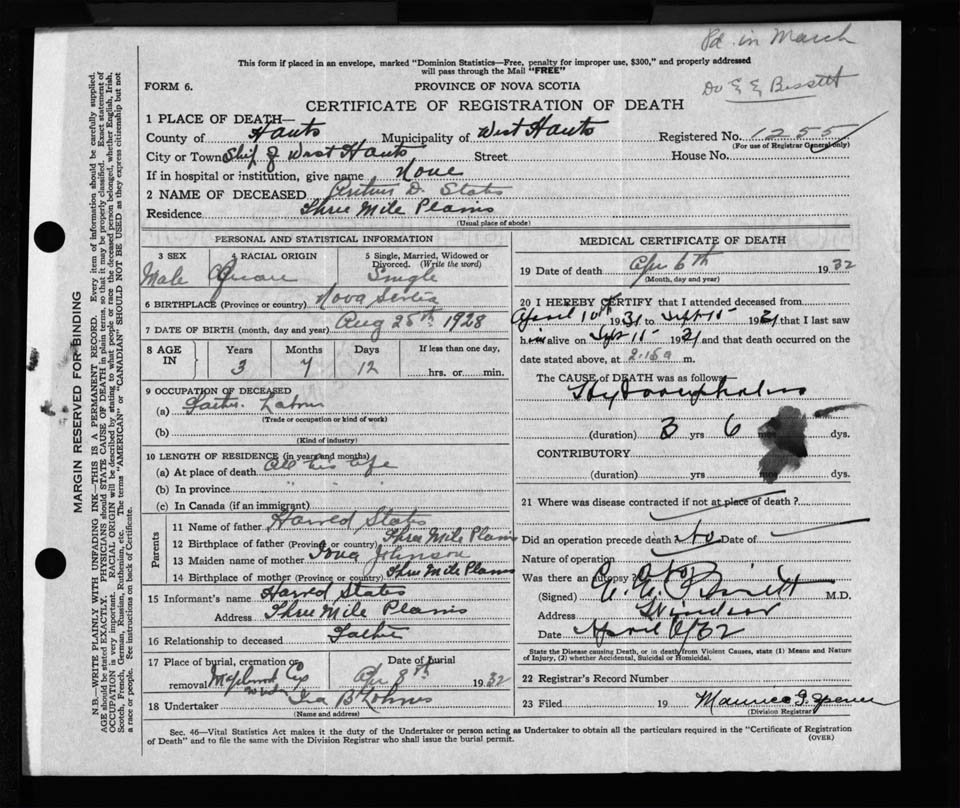 Pd. in March
This form if placed in an envelope, marked "Dominion Statistics—Free, penalty for improper use, $300," and properly addressed
will pass through the Mail "FREE"
FORM 6.
PROVINCE OF NOVA SCOTIA
Dr E E Bissett
CERTIFICATE OF REGISTRATION OF DEATH
1 PLACE OF DEATH—
County of Hants Municipality of West Hants Registered No. 1255
(For use of Registrar General only)
City or Town Shif of West Hants Street House No.
If in hospital or institution, give name None
2 NAME OF DECEASED Arthur D. States
Residence Three Mile Plains
(Usual place of abode)
PERSONAL AND STATISTICAL INFORMATION
3 SEX 4 RACIAL ORIGIN 5 Single, Married, Widowed or
Divorced. (Write the word)
Male Single
6 BIRTHPLACE (Province or country) Nova Scotia
7 DATE OF BIRTH (month, day and year) Aug 25th 1928
8 AGE IN Years Months Days If less than one day,
3 7 12 hrs. or min.
9 OCCUPATION OF DECEASED
(a) Father. Labour
(Trade or occupation or kind of work)
(b)
(Kind of industry)
10 LENGTH OF RESIDENCE (in years and months)
(a) At place of death All his life
(b) In province " " "
(c) In Canada (if an immigrant)
Parents
11 Name of father Harred States
12 Birthplace of father (Province or country) Three Mile Plains
13 Maiden name of mother Johnson
14 Birthplace of mother (Province or country) Three Mile Plains
15 Informant's name Harred States
Address Three Mile Plains
16 Relationship to deceased Father
17 Place of burial, cremation or Date of burial
removal Apr 8th 1932
18 Undertaker Ira B Lohnes
(Name and address)
MEDICAL CERTIFICATE OF DEATH
19 Date of death Apr 6th 1932
(Month, day and year)
20 I HEREBY CERTIFY that I attended deceased from
April 10th 1931 to Sept 15 1931 that I last saw
him alive on Sept 15 1931 and that death occurred on the
date stated above, at 2.15 a m.
The CAUSE of DEATH was as follows
Hydrocephalus
(duration) 3 yrs 6 mos dys.
CONTRIBUTORY
(duration) yrs mos dys.
21 Where was disease contracted if not at place of death?
Did an operation precede death? No Date of
Nature of operation
Was there an autopsy? No
(Signed) E. E. Bissett M.D.
Address Windsor
Date April 6/32
State the Disease causing Death, or in death from Violent Causes, state (1) Means and Nature
of Injury, (2) whether Accidental, Suicidal or Homicidal.
22 Registrar's Record Number
23 Filed 19 Maurice G. Spence
(Division Registrar)
Sec. 46—Vital Statistics Act makes it the duty of the Undertaker or person acting as Undertaker to obtain all the particulars required in the "Certificate of Registration
of Death" and to file the same with the Division Registrar who shall issue the burial permit.
(OVER)
MARGIN RESERVED FOR BINDING
N.B.—WRITE PLAINLY WITH UNFADING INK—THIS IS A PERMANENT RECORD. Every item of information should be carefully supplied.
AGE should be stated EXACTLY. PHYSICIANS should STATE CAUSE OF DEATH in plain terms, so that it may be properly classified. Exact statement of
OCCUPATION is very important. RACIAL ORIGIN will be described by stating to what people or race the deceased person belonged, whether English, Irish,
Scotch, French, German, Russian, Ruthenian, etc. The terms "AMERICAN" or "CANADIAN" SHOULD NOT BE USED as they express citizenship but not
a race or people. See instructions on back of Certificate.